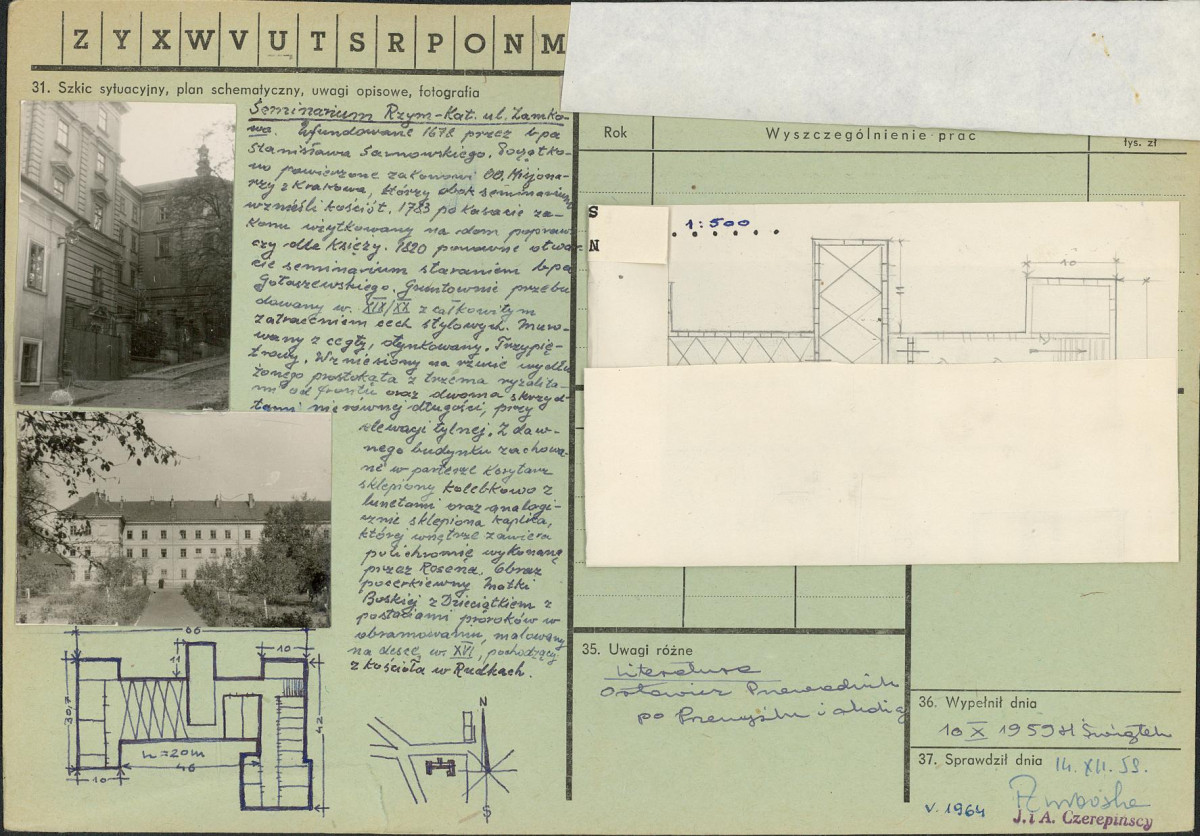 Z Y X W V U T S R P O N M
31. Szkic sytuacyjny, plan schematyczny, uwagi opisowe, fotografia
Seminarium Rzym-Kat. ul. Zamko-
wa. Ufundowane 1678 przez b-pa
Stanisława Sarnowskiego. Początko-
wo powierzone zakonowi OO. Misjona-
rzy z Krakowa, którzy obok seminarium
wznieśli kościół. 1783 po kasacie za-
konu użytkowany na dom popraw-
czy dla księży. 1820 ponowne otwar-
cie seminarium staraniem b-pa
Gołaszewskiego. Gruntownie przebu
dowany w. XIX/XX z całkowitym
zatraceniem cech stylowych. Muro-
wany z cegły, otynkowany. Trzypię-
trowy. Wzniesiony na rzucie wydłu
żonego prostokąta z trzema ryzalita-
mi od frontu oraz dwoma skrzyd-
łami nierównej długości, przy
elewacji tylnej. Z daw-
nego budynku zachowa-
ne w parterze korytarz
sklepiony kolebkowo z
lunetami oraz analogi-
cznie sklepiona kaplica,
której wnętrze zawiera
polichromię wykonaną
przez Rosena. Obraz
pocerkiewny Matki
Boskiej z Dzieciątkiem z
postaciami proroków w
obramowaniu, malowany
na desce, w. XVI, pochodzący
z kościoła w Rudkach.
66
11
10
30,7
42
h=20m
46
10
N
S
Rok
Wyszczególnienie prac
tys. zł
S
N
1:500
11
10
35. Uwagi różne
Literatura
Orłowicz Przewodnik
po Przemyślu i okolicy
36. Wypełnił dnia
10 X 1959 H Świątek
37. Sprawdził dnia 14. XII. 59.
v. 1964
J. i A. Czerepińscy